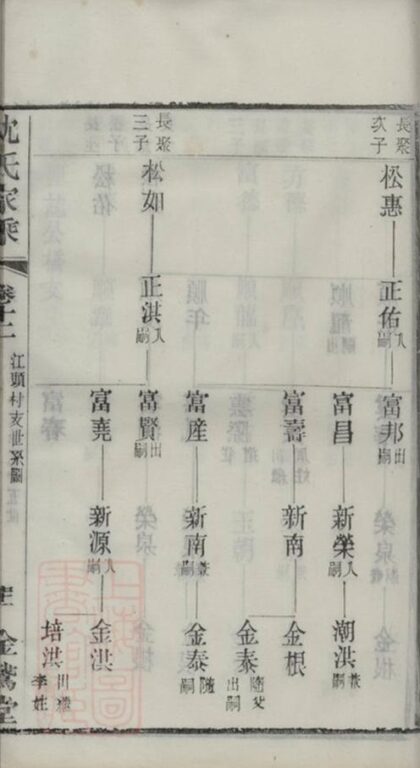 長聚次子
松惠
正佑入嗣
富邦出嗣
富昌
新榮入嗣
潮洪兼嗣
富壽
新南
金根
金泰隨父出嗣
富産
新南兼嗣
金泰隨嗣
長聚三子
松如
正洪入嗣
富賢出嗣
富堯
新源入嗣
金洪
培洪出李姓
沈氏家乘
卷十二
江頭村支世系圖
金鵞堂